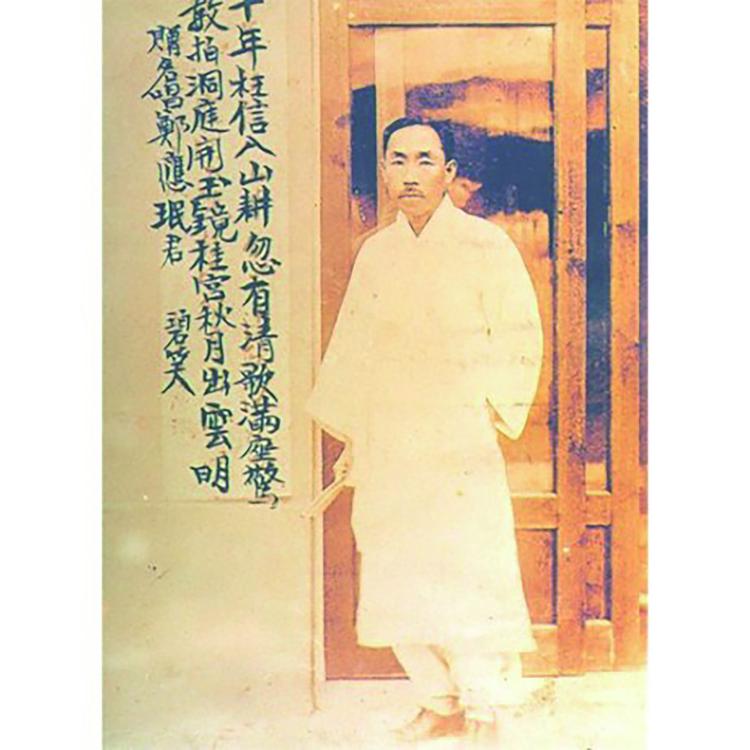 十年枉信入山耕忽有清歌滿座驚
數拍洞庭開玉鏡桂宮秋月出雲明
贈名唱鄭應珉君
碧笑